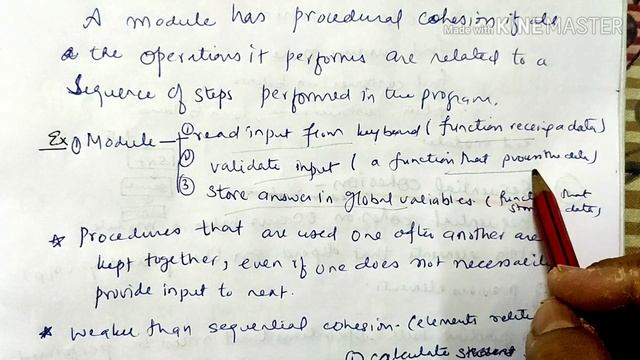 A module has procedural cohesion if all
Made with KINEMASTER
the operations it performs are related to a
Sequence of steps performed in the program.
Ex ① Module - ① read input from keyboard (function receiving data)
② validate input (a function that process the data)
③ store answer in global variables. (function that store data)
* Procedures that are used one after another are
kept together, even if one does not necessarily
provide input to next.
* weaker than sequential cohesion. (elements
① calculate